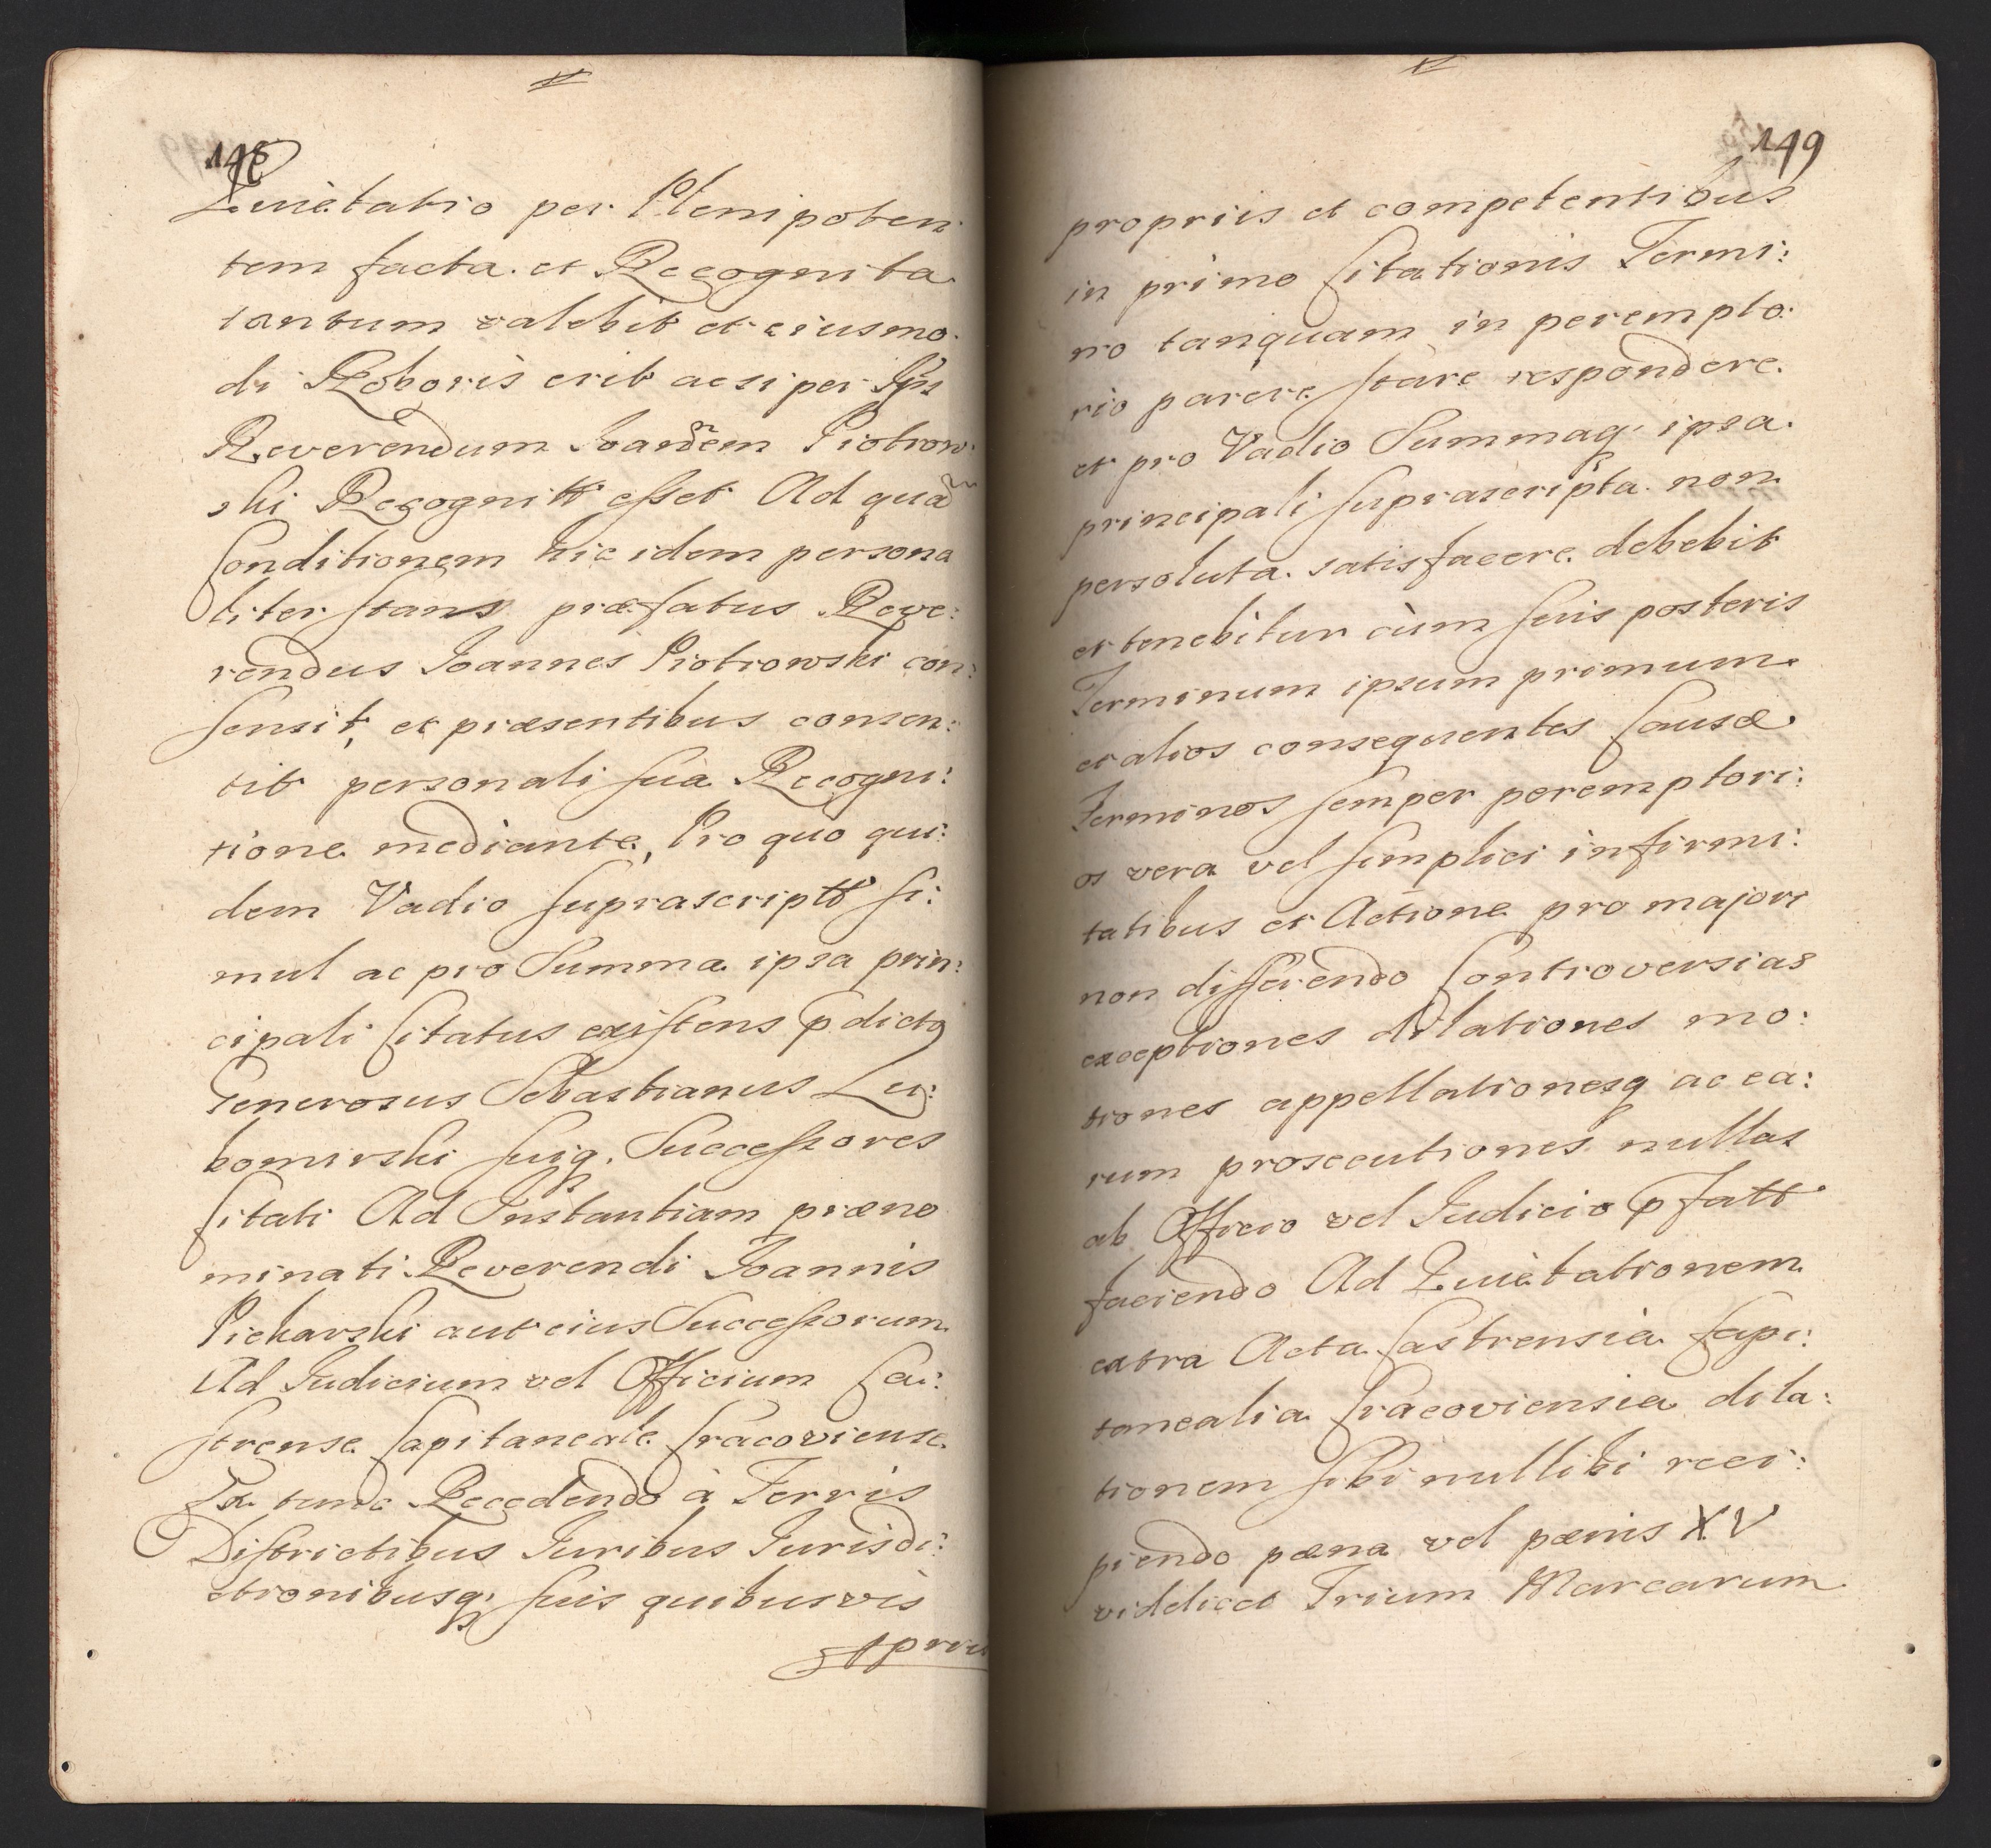 148
Quietatio per Plenipoten:
tem facta et Recognita
tantum valebit et eiusmo:
di Roboris erit ac si per Ipsũ
Reverendum Joañem Piotrow:
ski Recognitt esset Ad quã
Conditionem hic idem persona
liter stans præfatus Reve:
rendus Joannes Piotrowski con:
sensit, et præsentibus consen:
tit personali sua Recogni:
tione mediante, Pro quo qui:
dem Vadio suprascriptt si:
mul ac pro Summa ipsa prin:
cipali Citatus existens p̃dictq
Generosus Sebastianus Lu:
bomirski suiq. Successores
Citati Ad Instantiam præno
minati Reverendi Joannis
Piekarski aut eius Successorum
Ad Judicium vel Officium Ca:
strense Capitaneale Cracoviense
Ex tunc Recedendo à Terris
Districtibus Juribus Jurisdi:
ctionibusq. suis quibusvis
149
propriis et competentibus
in primo Citationis Termi:
no tanquam in perempto:
rio parere stare respondere
et pro Vadio Summaq. ipsa
principali suprascripta non
persoluta satisfacere debebit
et tenebitur cùm suis posteris
Terminum ipsum primum
et alios consequentes Causæ
Terminos semper peremptori:
os vera vel simplici infirmi:
tatibus et Actione pro majori
non differendo Controversias
exceptiones dilationes mo:
tiones appellationesq ac ea:
rum prosecutiones nullas
ab Officio vel Judicio p̃fatt
faciendo Ad Quietationem
extra Acta Castrensia Capi:
tanealia Cracoviensia dila:
tionem sibi nullibi reci:
piendo pæna vel pænis XV
videlicet Trium Marcarum